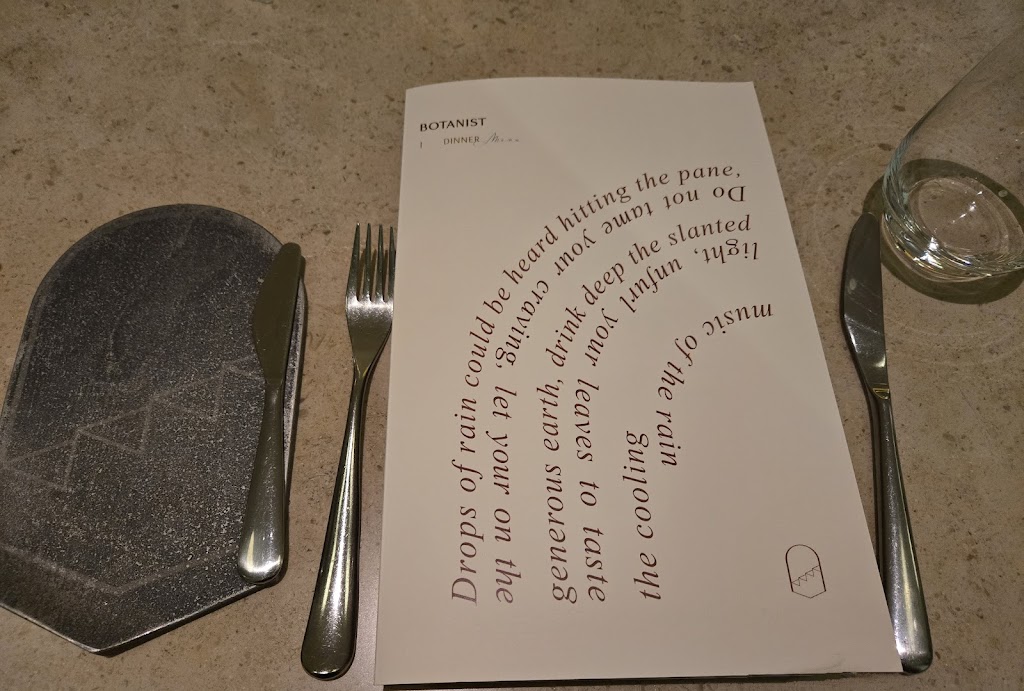 BOTANIST
| DINNER Menu
Drops of rain could be heard hitting the pane,
Do not tame your craving, let your on the
generous earth, drink deep the slanted
light, unfurl your leaves to taste
the cooling
music of the rain